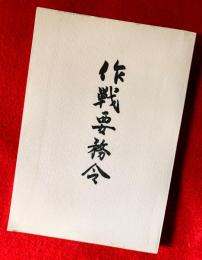 作戰要務令